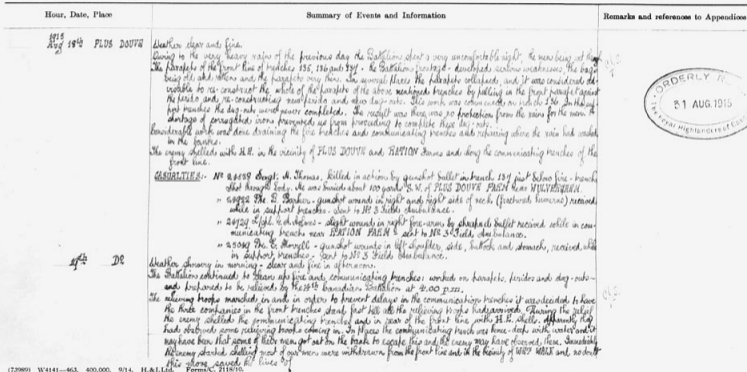 Hour, Date, Place
Summary of Events and Information
Remarks and references to Appendices
1915
Aug 18th PLUS DOUVE
Weather clear and fine.
Owing to the very heavy rains of the previous day the Battalion spent a very uncomfortable night, the men being
The Parapets of the front line of trenches 135, 136 and 137 - the Battalion frontage - developed serious weaknesses, the bags
being old and rotten and the parapets very thin. In several places the parapets collapsed, and it was considered
to re-construct the whole of the parapets of the above mentioned trenches by pulling in the front parapet against
the parados and re-constructing new parados and also dug-outs. This work was commenced on trench 136. In the
trenches the dug-outs were never completed. The result was there was no protection from the rains for the men. A
shortage of corrugated iron prevented us from proceeding to complete these dug-outs.
Considerable work was done draining the fire trenches and communicating trenches and repairing where the rain had washed
in the banks.
The enemy shelled with H.E. in the vicinity of PLUS DOUVE and RATION Farms and along the communicating trenches of the
front line.
CASUALTIES:- No Sergt. H. Thomas, killed in action by gunshot bullet in trench 137 just before - trench
shot through body. He was buried about 100 yards S.W. of PLUS DOUVE FARM near WULVERGHEM.
" Pte. B. Barker - gunshot wound in right and right side of neck (fractured humerus) received
while in support trenches - sent to No 3 Field Ambulance.
" slight wound in right fore-arm by shrapnel bullet received while in com-
municating trench near RATION FARM & sent to No 3 Field Ambulance.
" Pte. - gunshot wounds in left shoulder, side, buttock and stomach, received while
in support trenches - sent to No 3 Field Ambulance.
Do
Weather showery in morning - clear and fine in afternoon.
The Battalion continued to clean up fire and communicating trenches: worked on parapets, parados and dug-outs-
and prepared to be relieved by the 14th Canadian Battalion at 4.00 p.m.
The relieving troops marched in and in order to prevent delays in the communication trenches it was decided to have
the three companies in the front trenches stand fast till all the relieving troops had arrived. During the relief
the enemy shelled the communicating trenches and in rear of the front line with H.E. shells. Apparently they
had observed some relieving troops coming in. In places the communicating trench was knee-deep with water and it
may have been that some of the men got out on the bank to escape this and the enemy may have observed them. Immediately
the enemy started shelling most of our men were withdrawn from the front line and in the vicinity of and no doubt
this alone saved the lives of
ORDERLY
1 AUG. 1915
Royal Highlanders of
(73989) W4141—463. 400,000. 9/14. H.&J.Ltd. Forms/C. 2118/10.